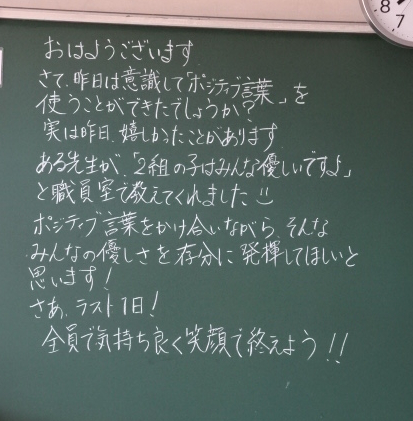 おはようございます
さて、昨日は意識して「ポジティブ言葉」を
使うことができたでしょうか？
実は昨日、嬉しかったことがあります
ある先生が、「2組の子はみんな優しいですよ」
と職員室で教えてくれました
ポジティブ言葉をかけ合いながら、そんな
みんなの優しさを存分に発揮してほしいと
思います！
さあ、ラスト1日！
全員で気持ち良く笑顔で終えよう！！
8
7